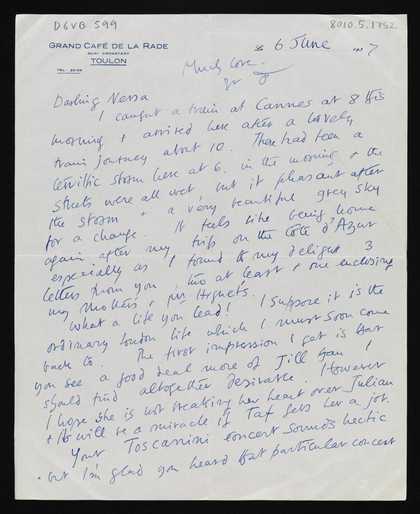 DGVB S99
8010.5.1752
GRAND CAFÉ DE LA RADE
QUAI CRONSTADT
TOULON
le 6 June 7
Much love.
Darling Nessa
I caught a train at Cannes at 8 this
morning & arrived here after a lovely
train journey about 10. There had been a
terrific storm here at 6. in the morning & the
streets were all wet, but it pleasant after
the storm & a very beautiful grey sky
for a change. It feels like being home
again after my trip on the Côte d'Azur
especially as I found to my delight 3
letters from you, two at least & one enclosing
my Mother's &
What a life you lead! I suppose it is the
ordinary London life which I must soon come
back to. The first impression I get is that
you see a good deal more of Jill than I
should find altogether desirable. However
I hope she is not breaking her heart over Julian
& it will be a miracle if Taf gets her a job.
Your Toscanini concert sounds hectic
but I'm glad you heard that particular concert